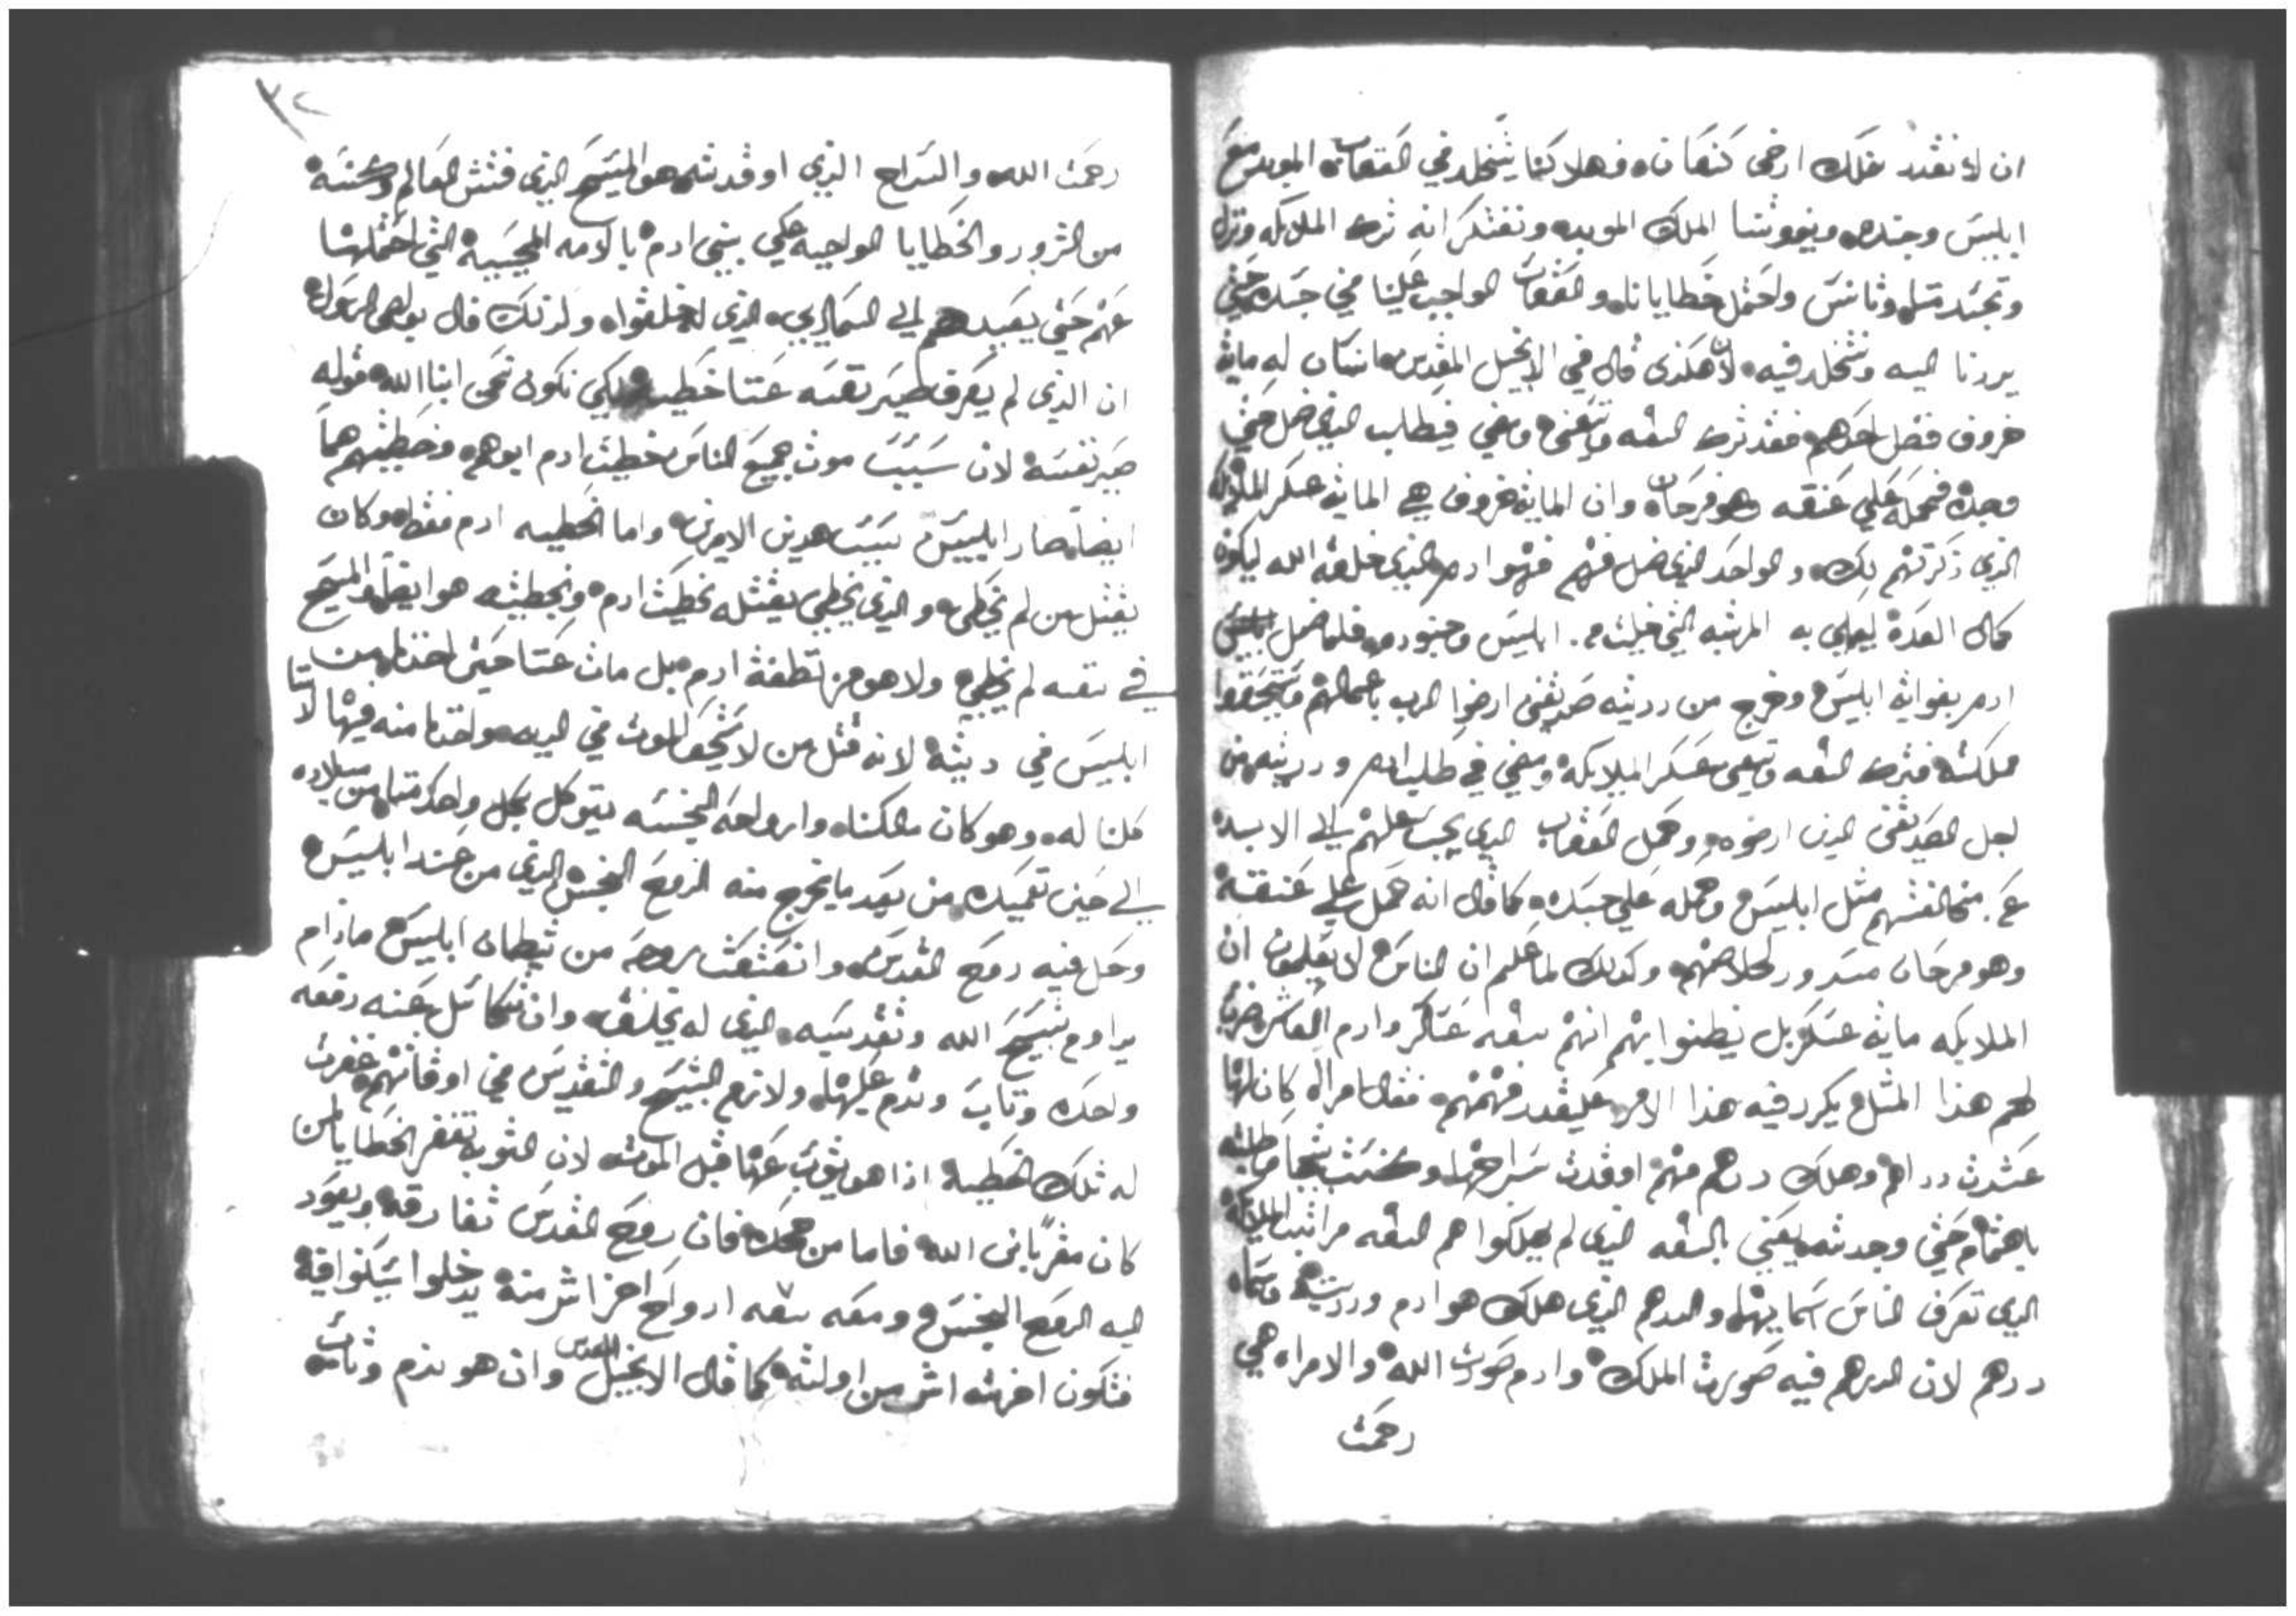 ان لا نقدر نملك ارض كنعان فهلا كنا يتخلد في العقاب الموبد مع
ابليس وجنده ويفوتنا الملك الموبد ونفتكر انه ترك الملايكه ونزل
وتجسد وتانس واحتمل خطايانا والعقاب الواجب علينا في جسده حتي
يردنا اليه ونتخلد فيه لان هكذى قال في الانجيل المقدس انسان له مايه
خروف فضل احدهم فقد ترك التسعه وتسعين ومضي في طلب الذي ضل حتي
وجده فحمله علي عنقه وهو فرحان وان المايه خروف هي المايه عسكر الملايكه
الذي ذكرتهم لك والواحد الذي ضل منهم فهو ادم الذي خلقه الله ليكون
كمال العده ليملي به المرتبه التي خليت من ابليس وجنوده فلما ضل
ادم بغوايه ابليس وخرج من ذريته صديقين ارضوا الرب باعمالهم واستحقوا
ملكته فترك التسعه وتسعين عسكر الملايكه ومضي في طلب ادم وذريته من
اجل الصديقين الذين ارضوه وحمل العقاب الذي يجب عليهم الي الابد
عن مخالفتهم مثل ابليس وحمله علي جسده كما قال انه حمل علي عنقه
وهو فرحان مسرور لخلاصهم وكذلك لما علم ان الناس لا يعلمون ان
الملايكه مايه عسكر بل يظنوا بهم انهم تسعه عساكر وادم العاشر ضرب
لهم هذا المثل يكرر فيه هذا الامر علي قدر فهمهم فقال امراه كان لها
عشرت دراهم وهلك درهم منهم اوقدت سراجها وكنست بيتها وطلبته
باهتمام حتي وجدته يعني بالتسعه الذي لم يهلكوا هم التسعه مراتب الملايكه
الذي تعرف الناس اسمايهم والدرهم الذي هلك هو ادم وذريته وسماه
درهم لان الدرهم فيه صورت الملك وادم صورت الله والامراه هي
رحمت
٣٢
رحمت الله والسراج الذي اوقدته هو المسيح الذي فتش العالم وكنسه
من الشرور والخطايا الواجبه علي بني ادم بالامه المحييه التي احتملها
عنهم حتي يعيدهم الي السماى الذي له خلقوا ولذلك قال بولص الرسول
ان الذي لم يعرف خطيه صير نفسه عنا خطيه لكي نكون نحن ابنا الله قوله
صير نفسه لان سبب موت جميع الناس خطيت ادم ابوهم وخطيتهم هما
ايضا صار ابليس بسبب هدين الامرين واما الخطيه ادم فقط وكان
يقتل من لم يخطي والذي يخطي يقتله بخطيت ادم وبخطيته هو ايضا والمسيح
في نفسه لم يخطي ولا هو من نطفة ادم بل مات عنا حتي اخذنا من
ابليس في ديته لانه قتل من لا يستحق الموت في اليه واخذنا منه فيها لانا
كلنا له وهو كان مالكنا وارواحه النجسه يتوكل بكل واحد منا من ميلاده
الي حين تعميده من بعد ما يخرج منه الروح النجس الذي من عند ابليس
وحل فيه روح القدس وانعتقت روحه من شيطان ابليس مادام
يداوم تسبيح الله وتقديسه الذي له يخلق وان تكاسل عنه دفعه
واحده وتاب وندم عليها ولازم التسبيح والتقديس في اوقاتهم غفرت
له تلك الخطيه اذا هو يتوب عنها قبل الموت لان التوبه تغفر الخطايا لمن
كان مقرا بابن الله فاما من جحده فان روح القدس تفارقه ويعود
اليه الروح النجس ومعه سبعه ارواح اخر اشر منه يدخلوا يسكنوا فيه
فتكون اخرته اشر من اولته كما قال الانجيل المقدس وان هو ندم وتاب